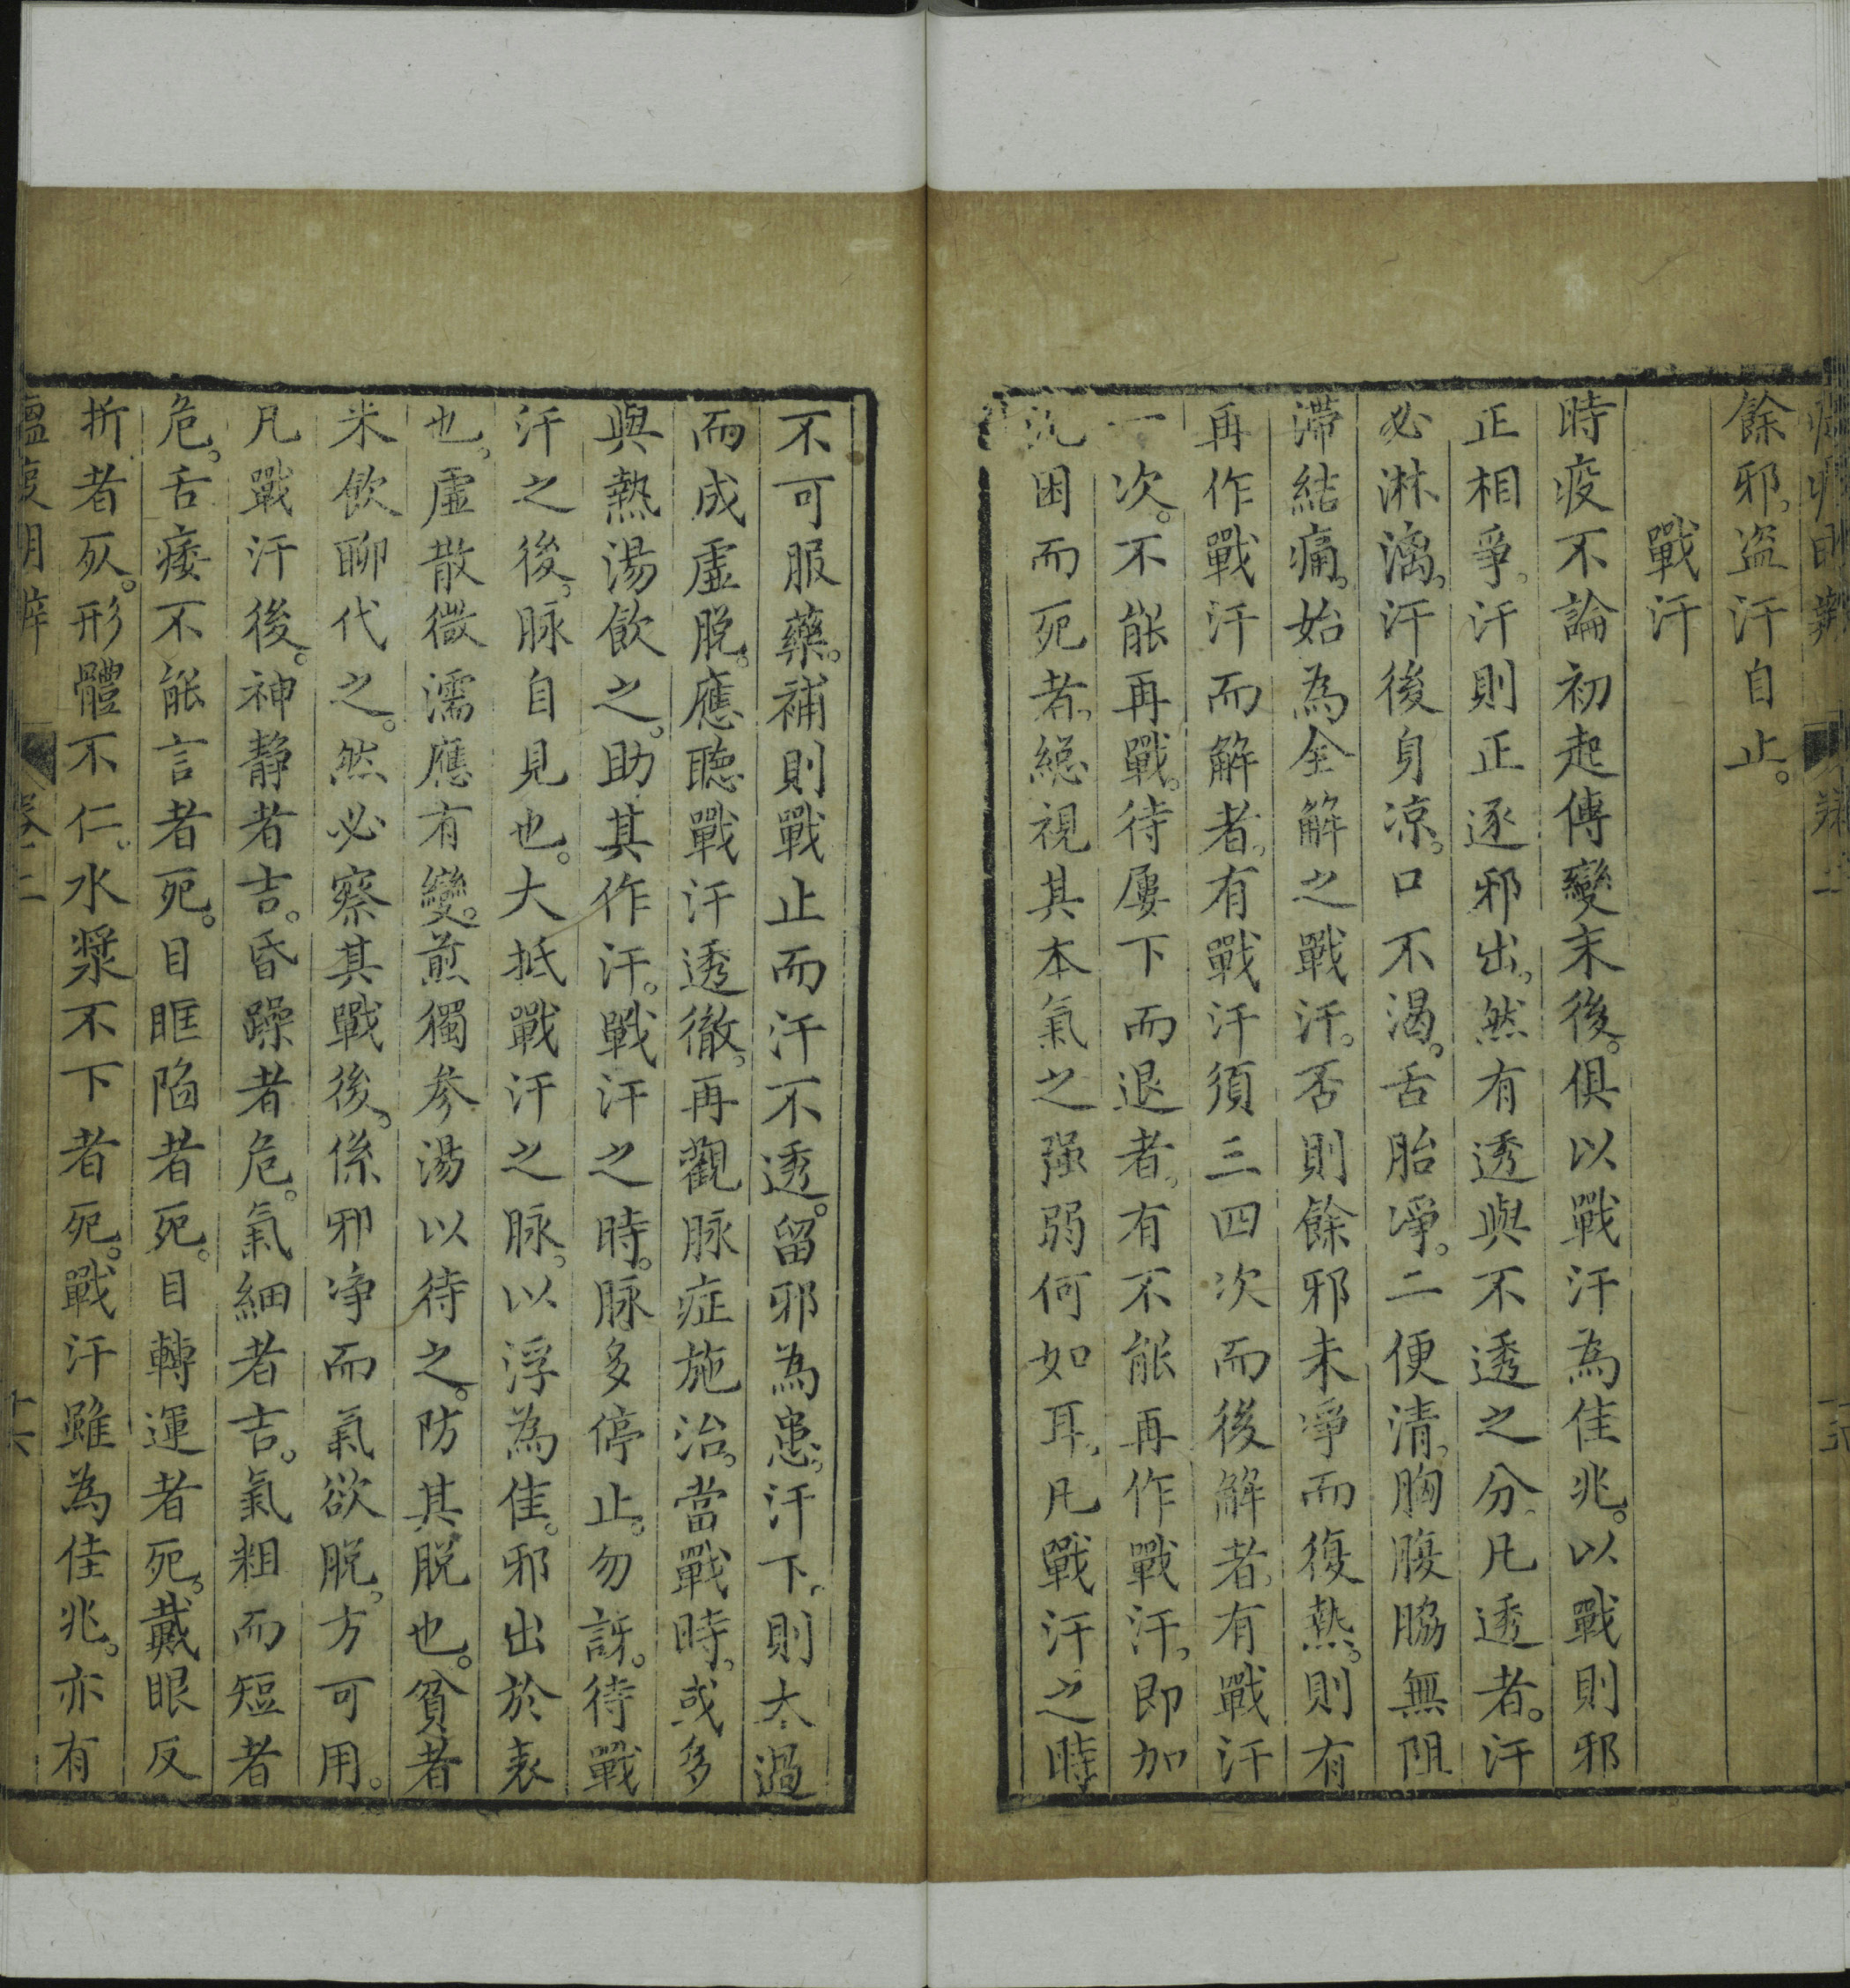 餘邪。盜汗自止。
戰汗
時疫不論初起傳變末後。俱以戰汗為佳兆。以戰則邪
正相爭。汗則正逐邪出。然有透與不透之分。凡透者。汗
必淋漓。汗後身凉。口不渴。舌胎淨。二便清。胸腹脇無阻
滯結痛。始為全解之戰汗。否則餘邪未淨而復熱。則有
再作戰汗而解者。有戰汗須三四次而後解者。有戰汗
一次。不能再戰。待屢下而退者。有不能再作戰汗。即加
沉困而死者。總視其本氣之强弱何如耳。凡戰汗之時
不可服藥。補則戰止而汗不透。留邪為患。汗下。則太過
而成虛脫。應聽戰汗透徹。再觀脉症施治。當戰時。或多
與熱湯飲之。助其作汗。戰汗之時。脉多停止。勿訝。待戰
汗之後。脉自見也。大抵戰汗之脉。以浮為佳。邪出於表
也。虛散微濡應有變。煎獨參湯以待之。防其脫也。貧者
米飲聊代之。然必察其戰後。係邪凈而氣欲脫。方可用。
凡戰汗後。神静者吉。昏躁者危。氣細者吉。氣粗而短者
危。舌痿不能言者死。目眶陷者死。目轉運者死。戴眼反
折者死。形體不仁。水漿不下者死。戰汗雖為佳兆。亦有
瘟疫明辨 卷二 十六